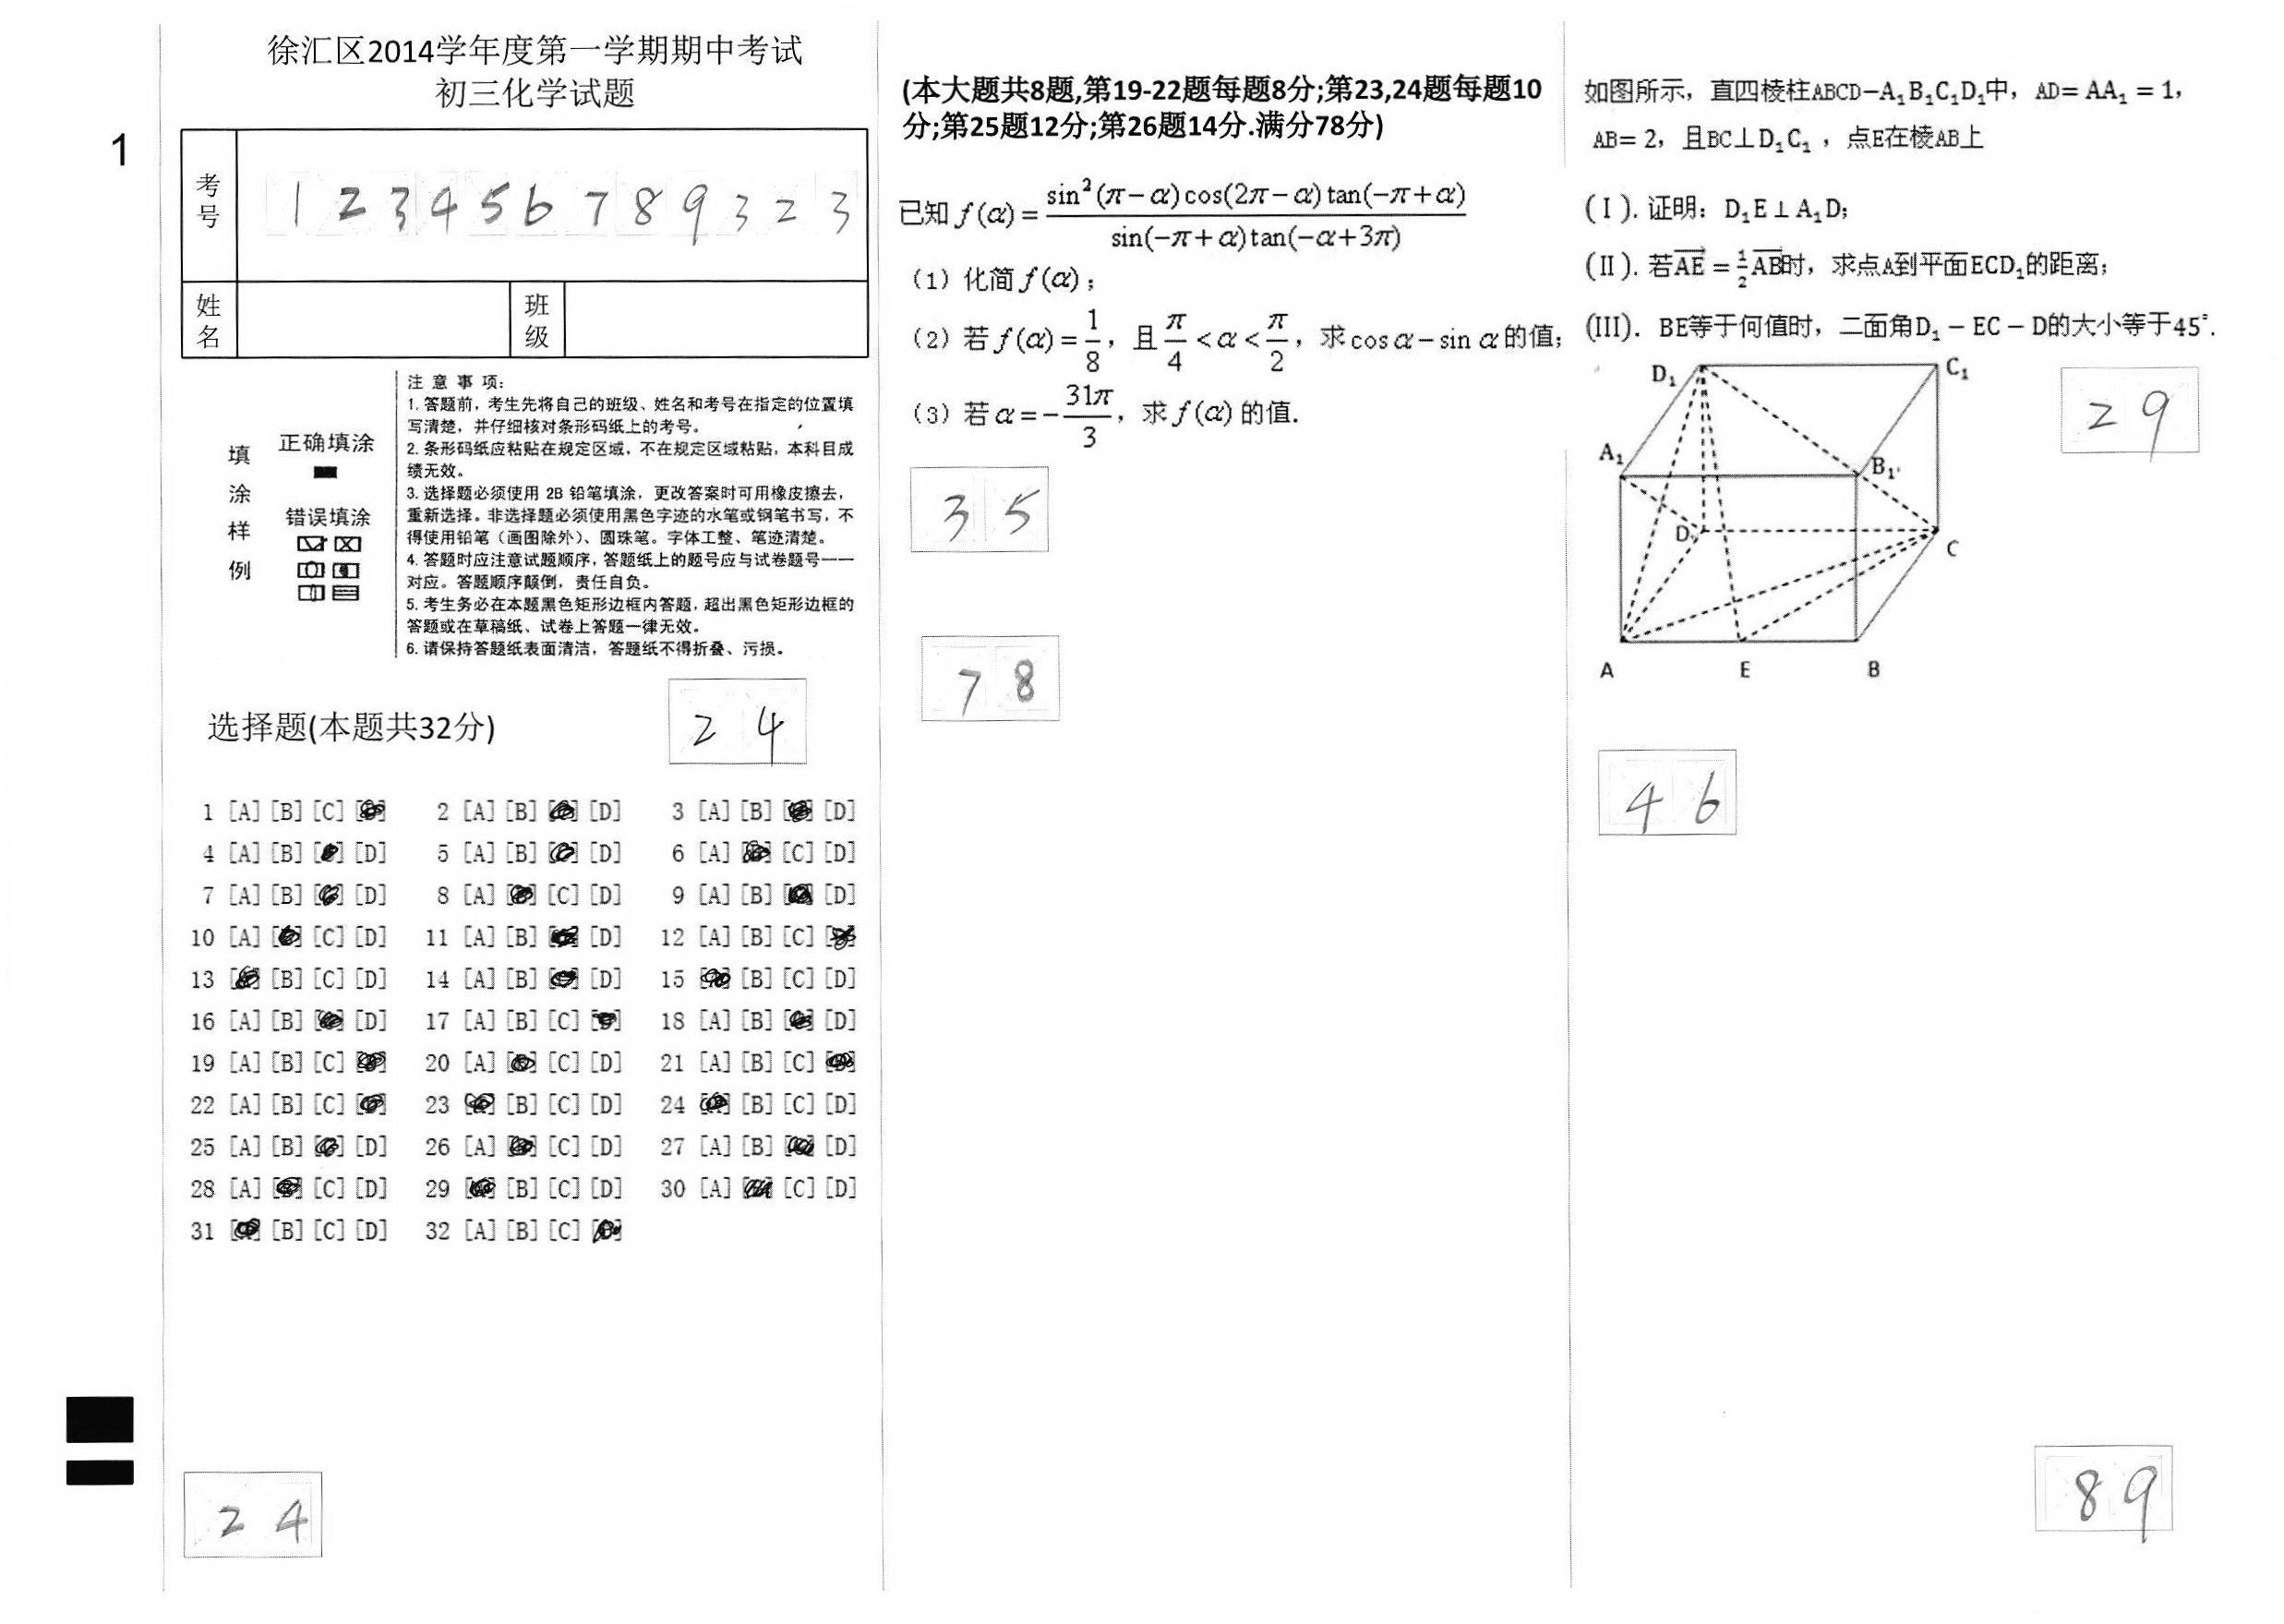 徐汇区2014学年度第一学期期中考试
初三化学试题
1
考号
1 2 3 4 5 6 7 8 9 3 2 3
姓名
班级
填涂样例
正确填涂
错误填涂
注 意 事 项:
1. 答题前, 考生先将自己的班级、姓名和考号在指定的位置填
写清楚, 并仔细核对条形码纸上的考号。
2. 条形码纸应粘贴在规定区域, 不在规定区域粘贴, 本科目成
绩无效。
3. 选择题必须使用 2B 铅笔填涂, 更改答案时可用橡皮擦去,
重新选择。非选择题必须使用黑色字迹的水笔或钢笔书写, 不
得使用铅笔（画图除外）、圆珠笔。字体工整、笔迹清楚。
4. 答题时应注意试题顺序, 答题纸上的题号应与试卷题号一一
对应。答题顺序颠倒, 责任自负。
5. 考生务必在本题黑色矩形边框内答题, 超出黑色矩形边框的
答题或在草稿纸、试卷上答题一律无效。
6. 请保持答题纸表面清洁, 答题纸不得折叠、污损。
选择题(本题共32分)
2 4
1 [A] [B] [C] 2 [A] [B] [D] 3 [A] [B] [D]
4 [A] [B] [D] 5 [A] [B] [D] 6 [A] [C] [D]
7 [A] [B] [D] 8 [A] [C] [D] 9 [A] [B] [D]
10 [A] [C] [D] 11 [A] [B] [D] 12 [A] [B] [C]
13 [B] [C] [D] 14 [A] [B] [D] 15 [B] [C] [D]
16 [A] [B] [D] 17 [A] [B] [C] 18 [A] [B] [D]
19 [A] [B] [C] 20 [A] [C] [D] 21 [A] [B] [C]
22 [A] [B] [C] 23 [B] [C] [D] 24 [B] [C] [D]
25 [A] [B] [D] 26 [A] [C] [D] 27 [A] [B] [D]
28 [A] [C] [D] 29 [B] [C] [D] 30 [A] [C] [D]
31 [B] [C] [D] 32 [A] [B] [C]
2 4
(本大题共8题,第19-22题每题8分;第23,24题每题10
分;第25题12分;第26题14分.满分78分)
已知 f(α) = sin²(π−α)cos(2π−α)tan(−π+α) / sin(−π+α)tan(−α+3π)
（1）化简 f(α)；
（2）若 f(α) = 1/8，且 π/4 < α < π/2，求 cos α − sin α 的值；
（3）若 α = −31π/3，求 f(α) 的值.
3 5
7 8
如图所示，直四棱柱ABCD−A₁B₁C₁D₁中，AD= AA₁ = 1，
AB= 2，且BC⊥D₁C₁，点E在棱AB上
(Ⅰ). 证明：D₁E⊥A₁D；
(Ⅱ). 若AE = 1/2 AB时，求点A到平面ECD₁的距离；
(III). BE等于何值时，二面角D₁−EC−D的大小等于45°.
D₁
C₁
2 9
A₁
B₁
D
C
A E B
4 6
8 9